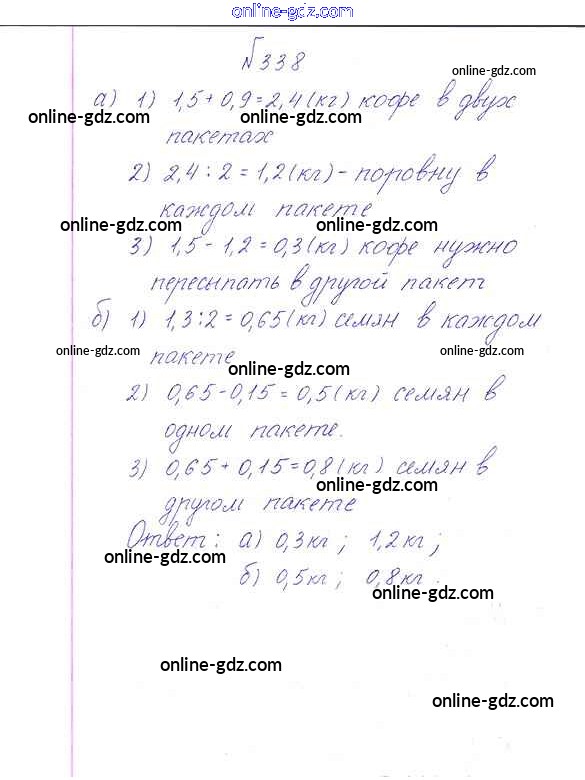 online-gdz.com
№338
online-gdz.com
а) 1) 1,5 + 0,9 = 2,4 (кг) кофе в двух
online-gdz.com
online-gdz.com
пакетах
2) 2,4 : 2 = 1,2 (кг) - поровну в
каждом пакете
online-gdz.com
online-gdz.com
3) 1,5 - 1,2 = 0,3 (кг) кофе нужно
пересыпать в другой пакет
б) 1) 1,3 : 2 = 0,65 (кг) семян в каждом
online-gdz.com
online-gdz.com
пакете
online-gdz.com
2) 0,65 - 0,15 = 0,5 (кг) семян в
одном пакете.
3) 0,65 + 0,15 = 0,8 (кг) семян в
online-gdz.com
другом пакете
Ответ: а) 0,3 кг ; 1,2 кг ;
online-gdz.com
б) 0,5 кг ; 0,8 кг .
online-gdz.com
online-gdz.com
online-gdz.com